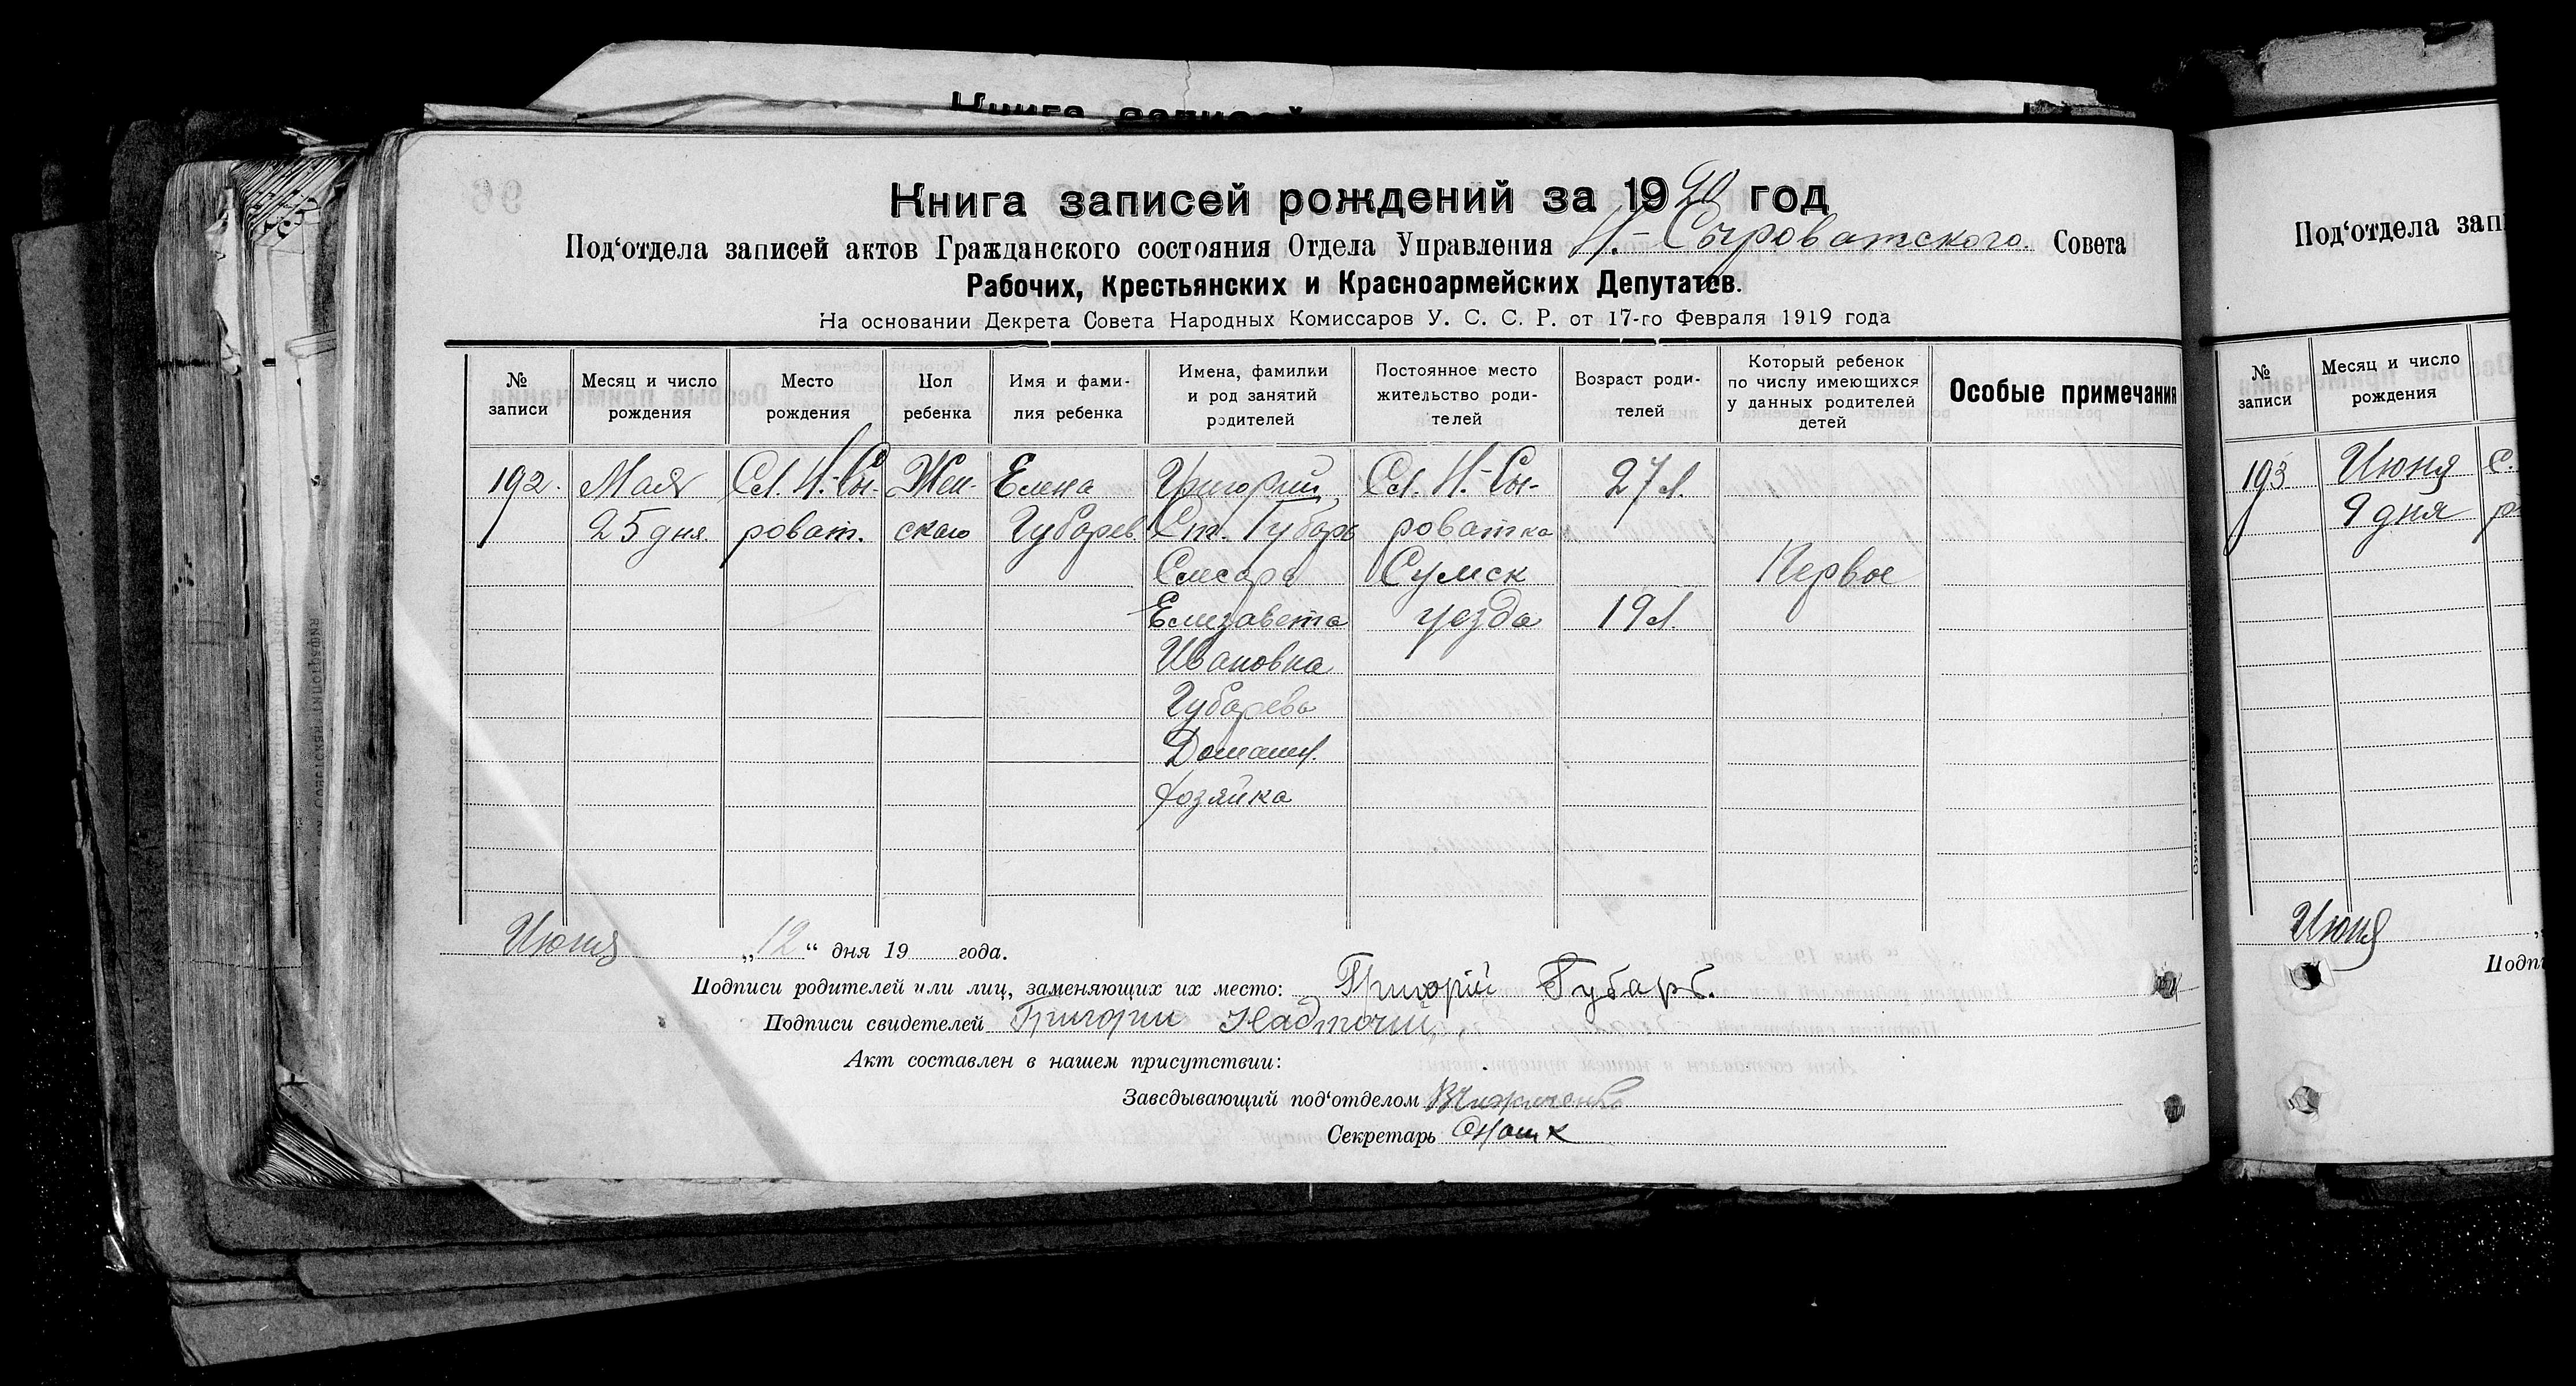 Книга записей
Книга записей рождений за 1920 год
Под‘отдела записей актов Гражданского состояния Отдела Управления Н.-Сыроватского Совета
Рабочих, Крестьянских и Красноармейских Депутатов.
На основании Декрета Совета Народных Комиссаров У. С. С. Р. от 17-го Февраля 1919 года
№ записи
Месяц и число рождения
Место рождения
Пол ребенка
Имя и фами-
лия ребенка
Имена, фамилки
и род занятий
родителей
Постоянное место
жительство роди-
телей
Возраст роди-
телей
Который ребенок
по числу имеющихся
у данных родителей
детей
Особые примечания
192. Мая Сл. Н.-Сы- Жен- Елена Григорий Сл. Н.-Сы- 27 л.
25 дня роват. скаго Губарев Ст. Губарь роватка
Слесарь Сумск Первое
Елизавета уезда 19 л.
Ивановна
Губарева
Домашн.
хозяйка
Июня „12“ дня 19 года.
Подписи родителей или лиц, заменяющих их место: Григорій Губарь.
Подписи свидетелей Григорий Надточий
Акт составлен в нашем присутствии:
Заведывающий под‘отделом
Секретарь
Под‘отдела зап
№ записи
Месяц и число
рождения
193 Июня с.
9 дня р
Июня
Подпи